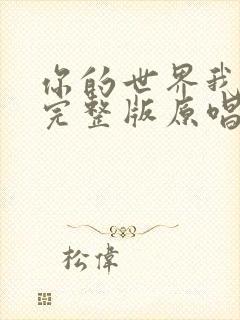 你的世界我
完整版原唱
松偉